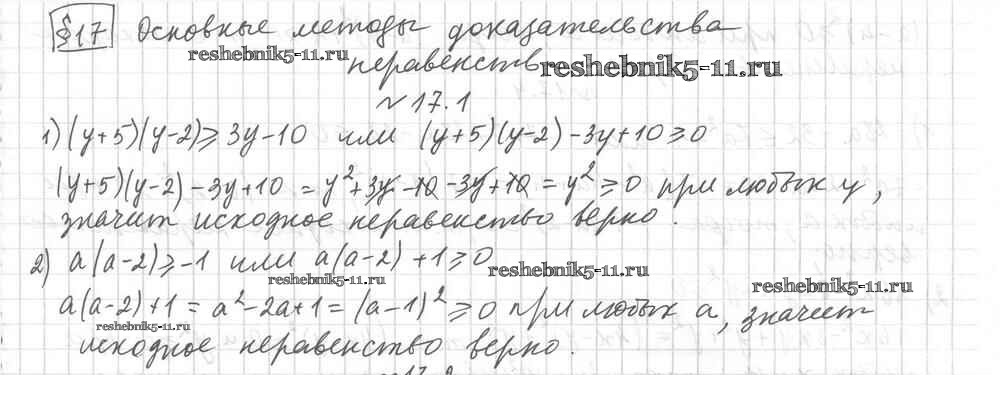 §17 Основные методы доказательства
reshebnik5-11.ru
неравенств reshebnik5-11.ru
№ 17.1
1) (y+5)(y-2) ≥ 3y-10 или (y+5)(y-2) -3y+10 ≥ 0
(y+5)(y-2) -3y+10 = y² +3y -10 -3y +10 = y² ≥ 0 при любых y,
значит исходное неравенство верно.
2) a(a-2) ≥ -1 или a(a-2) +1 ≥ 0
reshebnik5-11.ru reshebnik5-11.ru
reshebnik5-11.ru
a(a-2)+1 = a² -2a+1 = (a-1)² ≥ 0 при любых a, значит
reshebnik5-11.ru
исходное неравенство верно.